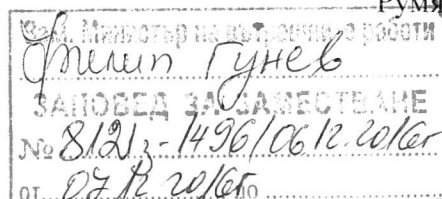 Румя
Зам. Министър на вътрешните работи
Филип Гунев
ЗАПОВЕД ЗА ЗАМЕСТВАНЕ
№ 8121з-1496/06.12.2016г
от 07.12.2016г. до